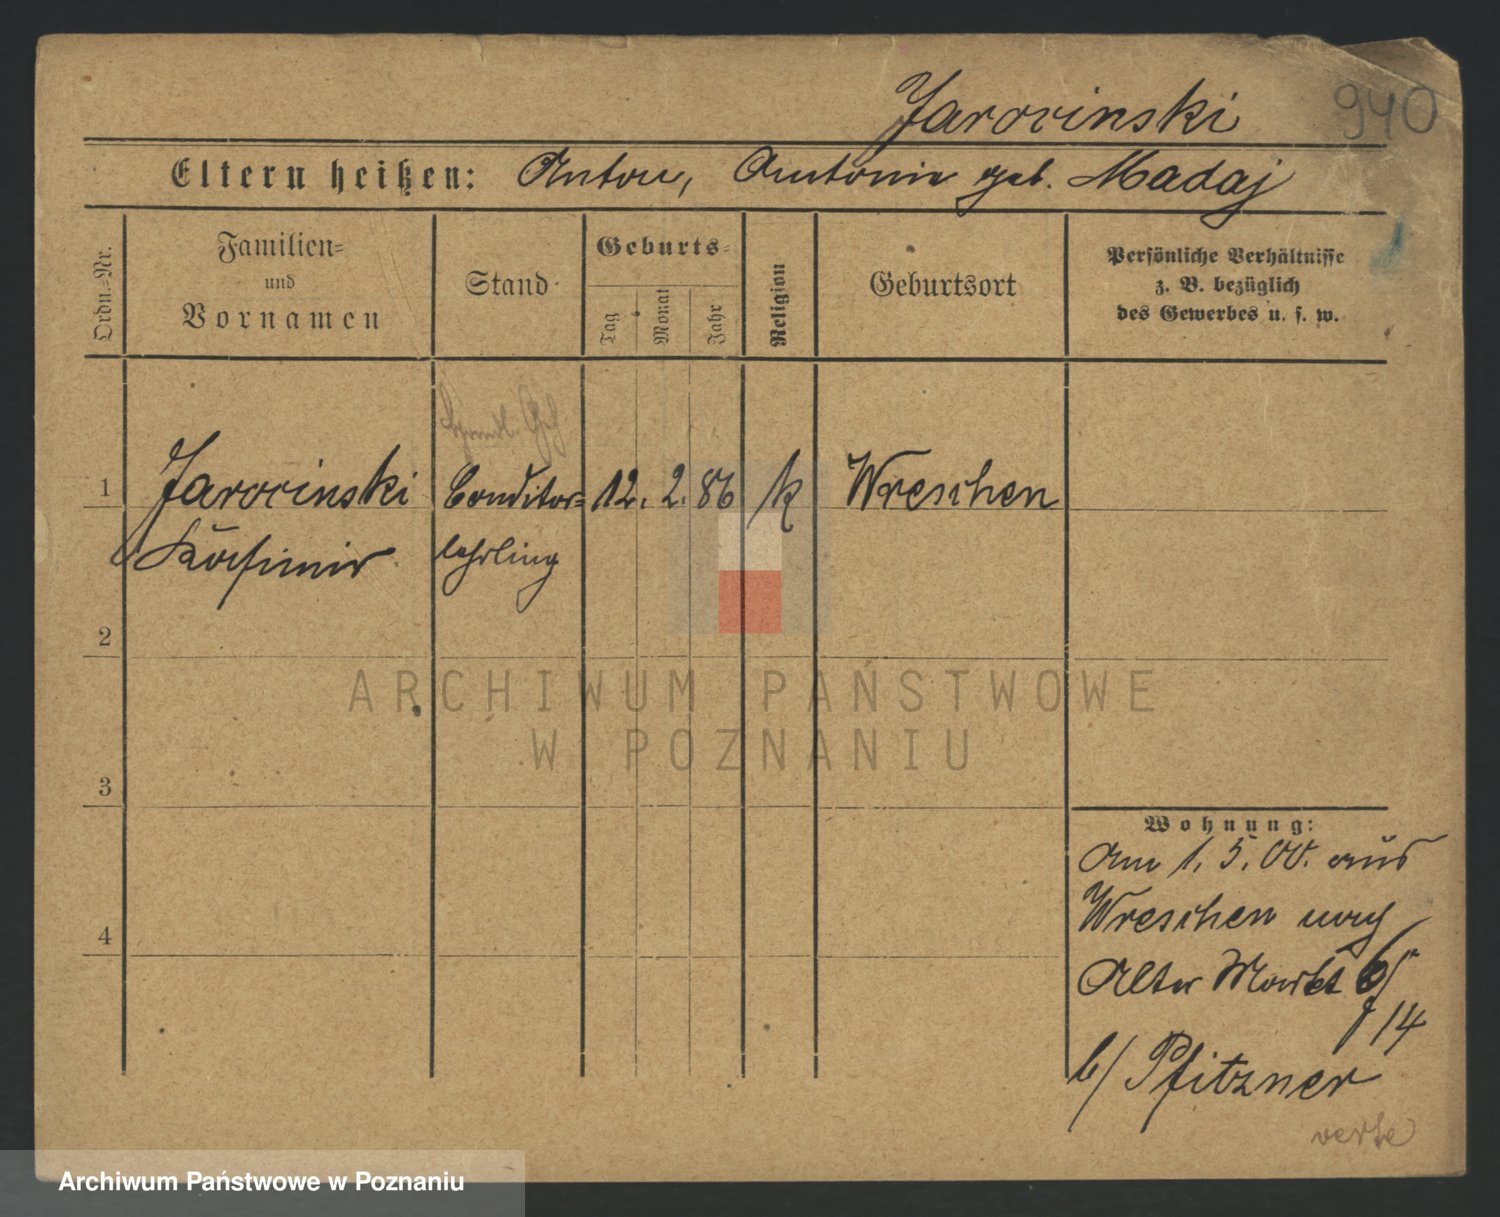 Jarocinski 940
Eltern heißen: Anton, Antonie geb. Madaj
Ordn.-Nr.
Familien-
und
Vornamen
Stand
Geburts-
Tag
Monat
Jahr
Religion
Geburtsort
Persönliche Verhältnisse
z. B. bezüglich
des Gewerbes u. s. w.
1 Jarocinski Conditor- 12. 2. 86 k Wreschen
Kasimir lehrling
2
3
4
Wohnung:
Am 1. 5. 00. aus
Wreschen nach
Alter Markt 6/
14
b/ Pfitzner
verte
ARCHIWUM PAŃSTWOWE
W POZNANIU
Archiwum Państwowe w Poznaniu